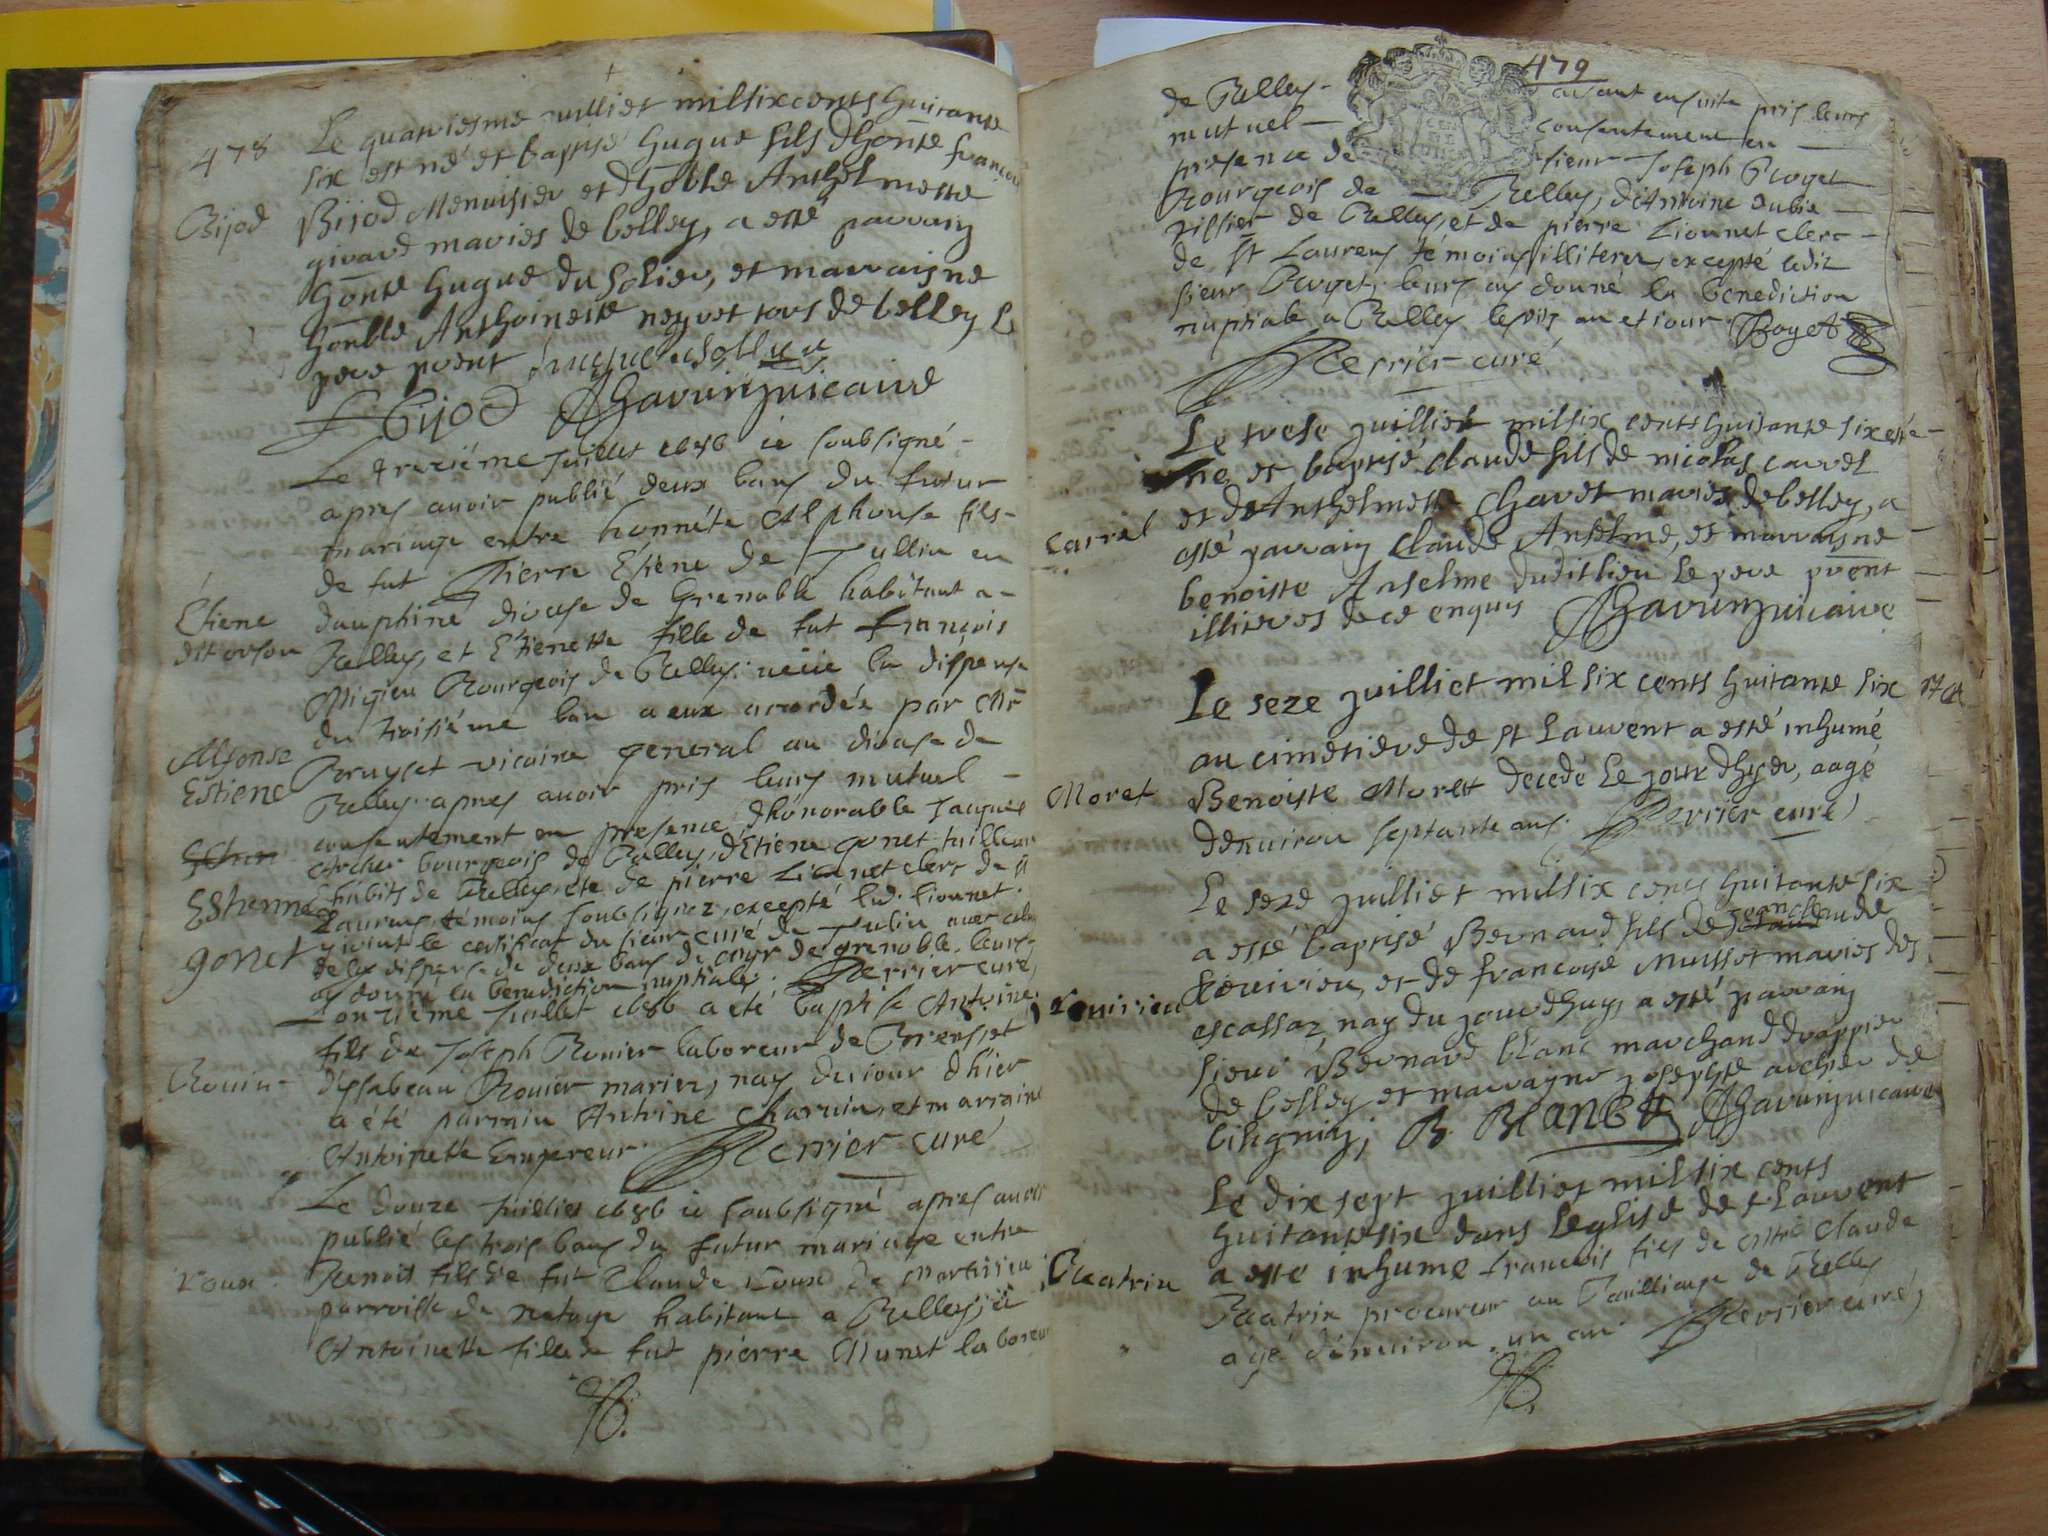 478
Le quatriesme juilliet mil six cents huitante
six est né et baptisé hugue fils d'honte francois
Bijod
Bijod Menuisier et d'honble Anthelmette
girard maries de belley, a esté parrain
honte hugue du Solier, et marraisne
honble Anthoinette neyvet tous de belley le
pere prent
Bijod Charvin vicaire
Le trezième Juillet 1686 ie soubsigné
apres auoir publié deux bans du futur
mariage entre honnéte Alphonse fils
de fut Pierre Étiene de Tullin en
Étiene
dauphiné diocese de Grenoble habitant a
dit orson
Belley, et Etienette fille de fut françois
Migieu Bourgeois de Belley: veüe la dispense
du troisiéme ban a eux accordée par Mr
Alfonse
Bruyset vicaire general au diocese de
Estiene
Belley apres auoir pris leurs mutuel
consentement en presence d'honorable Jacques
Archer bourgeois de Belley, d'Etiene gonet tailleur
Estienne
d'habits de Belley et de pierre Lionnet clerc de st
Laurens témoins soubsignez, excepté lud. Lionnet.
gonet
y vint le certificat du sieur curé de Tulin auec celuy
de la dispense de deux bans de mgr de grenoble. leurs
ay donné la benediction nuptiale; Perrier curé,
L'onzieme Juillet 1686 a été baptisé Antoine
fils de Joseph Rouier laboreur de Breysset
Rouier
d'ysabeau Rouier mariez, nay du iour d'hier
a été parrain Antoine Charuin, et marraine
Antoinette Empereur Perrier curé
Le douze Juilliet 1686 ie soubsigné apres auoir
publié les trois bans du futur mariage entre
Roux
Benoit fils de fut Claude Roux de Martinieu
parroisse de natage habitant a Belley, et
Antoinette fille de fut pierre Munet laboreur
479
de Belley ayant ensuite pris leurs
mutuel consentement en
presence de sieur Joseph Proyet
Bourgeois de Belley, d'Antoine dubie
de Belley, et de pierre Lionnet clerc
de st Laurens témoins illiterez, excepté ledit
sieur Proyet, leurs ay donné la benediction
nuptiale a Belley lesdits an et iour Proyet
Perrier curé
Le trese juilliet mil six cents huitante six esté
ne, et baptisé claude fils de nicolas carrel
et de Anthelmette Chavet maries de belley, a
Carrel
esté parrain claude Anselme, et marraisne
benoiste Anselme dudit lieu le pere prent
illiteres de ce enquis Charvin vicaire
Le seze juilliet mil six cents huitante six
au cimetiere de st Laurent a esté inhumé
Moret
Benoiste Morett decedé le jour d'hyer, aagé
d'enuiron septante ans. Perrier curé
Le seze juilliet mil six cens huitante six
a esté baptisé Bernard fils de Jean claude
et de francoise Musset maries des
escassaz, nay du jour d'huy, a esté parrain
sieur Bernard blanc marchand drappier
de belley et marrayne josephte archer de
B. BlANC Charvin vicaire
Le dix sept juilliet mil six cents
huitante six dans l'eglise de st Laurent
a esté inhume francois fils de mtre Claude
Beatrix
Beatrix procureur au Bailliage de Belley
agé d'enuiron un an. Perrier curé,